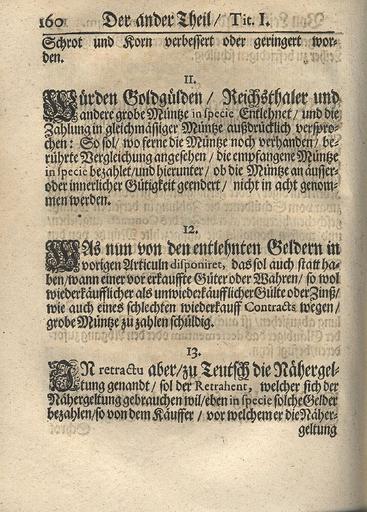 160 Der ander Theil / Tit. I.
Schrot und Korn verbessert oder geringert wor-
den.
11.
Würden Goldgülden / Reichsthaler und
andere grobe Müntze in specie Entlehnet / und die
Zahlung in gleichmässiger Müntze außdrücklich verspro-
chen: So sol / wo ferne die Müntze noch verhanden / be-
rührte Vergleichung angesehen / die empfangene Müntze
in specie bezahlet / und hierunter / ob die Müntz an äusser-
oder innerlicher Gütigkeit geendert / nicht in acht genom-
men werden.
12.
WAs nun von den entlehnten Geldern in
vorigen Articuln disponiret, das sol auch statt ha-
ben / wann einer vor erkauffte Güter oder Wahren / so wol
wiederkäufflicher als unwiederkäufflicher Gülte oder Zinß /
wie auch eines schlechten wiederkauff Contracts wegen /
grobe Müntze zu zahlen schüldig.
13.
IN retractu aber / zu Teutsch die Nähergel-
tung genandt / sol der Retrahent, welcher sich der
Nähergeltung gebrauchen wil / eben in specie solche Gelder
bezahlen / so von dem Käuffer / vor welchem er die Näher-
geltung